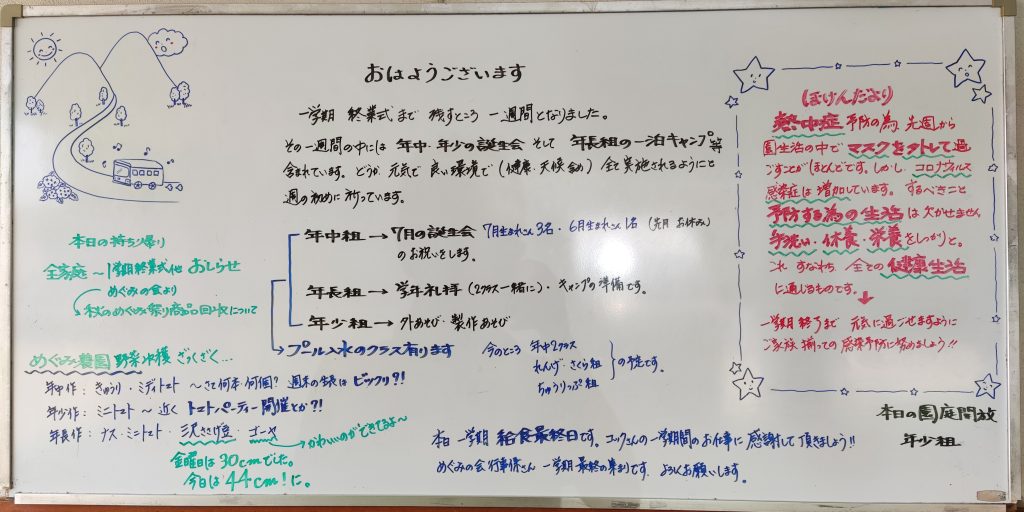 おはようございます
一学期 終業式まで 残すところ 一週間となりました。
その一週間の中には 年中・年少の誕生会 そして 年長組の一泊キャンプ等
含まれています。どうか 元気で 良い環境で(健康・天候含め) 全て実施されるようにと
週の初めに祈っています。
年中組→7月の誕生会 7月生まれさん3名・6月生まれさん1名 (先月 お休み)
のお祝いをします。
年長組→学年礼拝(2クラス一緒に)・キャンプの準備です。
年少組→外あそび・製作あそび
プール入水のクラス有ります 今のところ 年中2クラス
れんげ・さくら組 の予定です。
ちゅうりっぷ組
本日 一学期 給食最終日です。コックさんの一学期間のお仕事に 感謝して 頂きましょう!!
めぐみの会 行事係さん 一学期 最終の集まりです よろしくお願いします。
本日の持ち帰り
全家庭〜1学期終業式他 おしらせ
めぐみの会より
秋のめぐみ祭り商品回収について
めぐみ農園 野菜収穫 ざくざく...
年中作:きゅうり・ミディトマト 〜さて何本・何個? 週末の生長は ビックリ?!
年少作:ミニトマト〜近く トマトパーティー開催とか?!
年長作:ナス・ミニトマト・三尺ささげ豆・ゴーヤ
かわいいのができてるよ〜
金曜日は30cmでした。
今日は44cm!に。
ほけんだより
熱中症予防の為、先週から
園生活の中でマスクを外して過
ごすことがほとんどです。しかし、コロナウィルス
感染症は増加しています。するべきこと
予防する為の生活は欠かせません
手洗い・休養・栄養をしっかりと。
これ すなわち 全ての健康生活
に通じるものです。
一学期終了まで 元気に過ごせますように
ご家族揃っての感染予防に努めましょう!!
本日の園庭開放
年少組